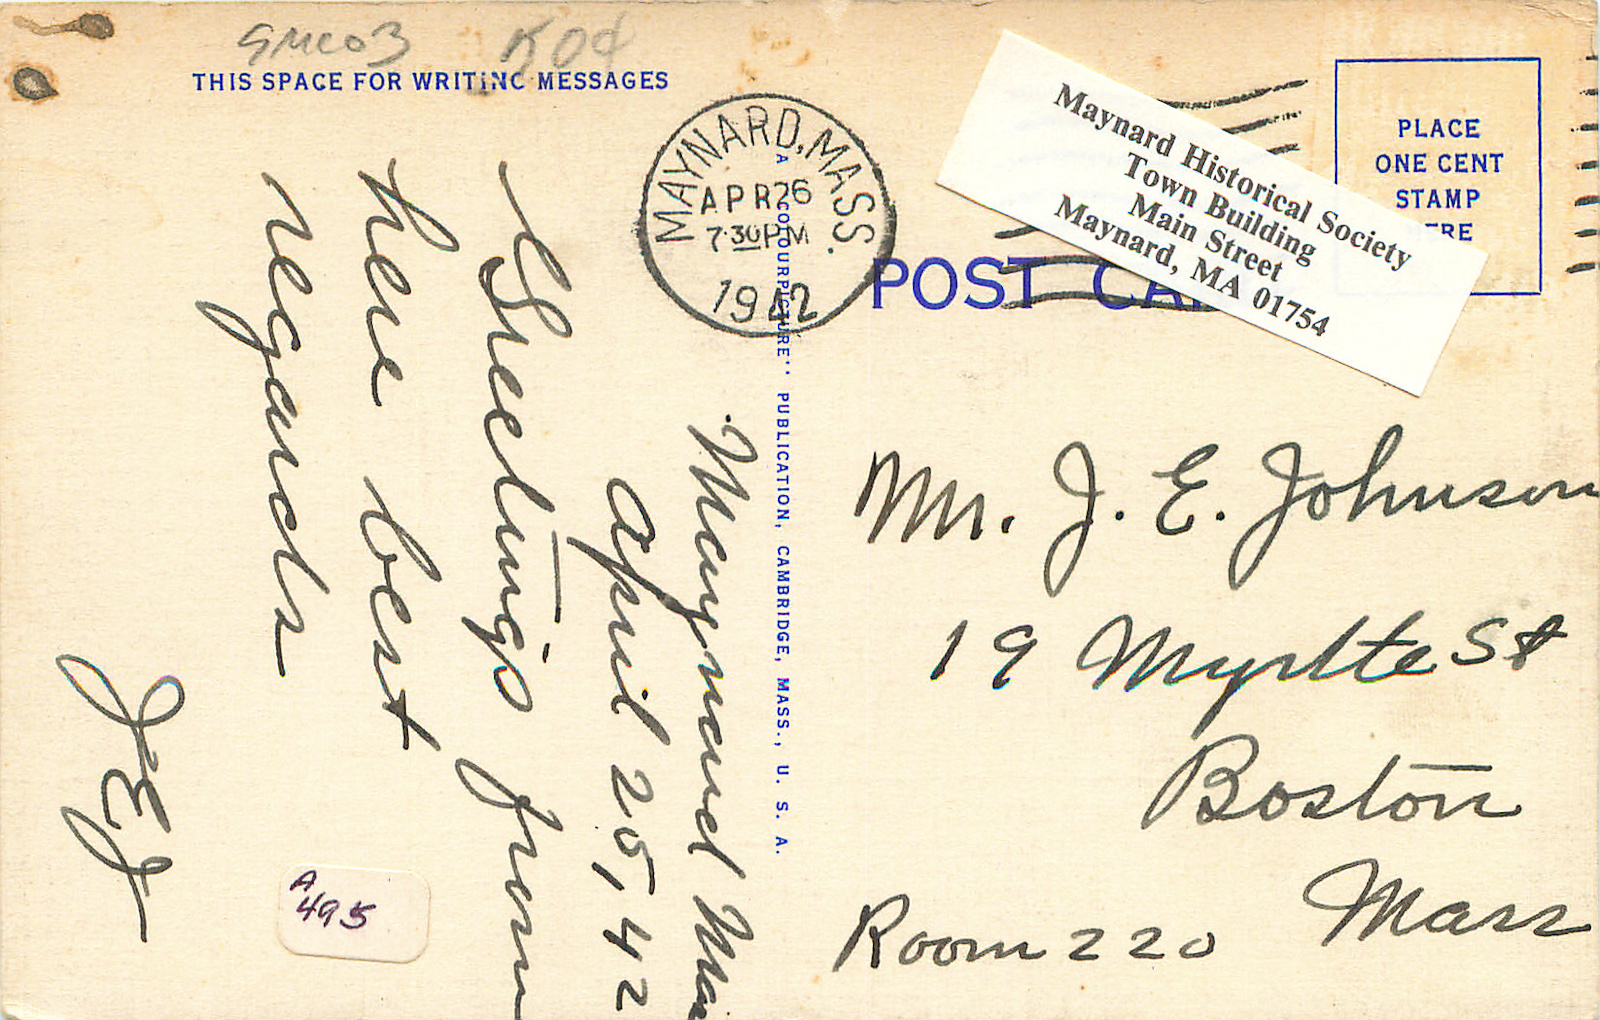 SMC03 K0¢
THIS SPACE FOR WRITING MESSAGES
MAYNARD, MASS.
APR 26
7:30 PM
1942
Maynard Historical Society
Town Building
Main Street
Maynard, MA 01754
PLACE
ONE CENT
STAMP
ERE
POST CA
A "COLOURPICTURE" PUBLICATION, CAMBRIDGE, MASS., U. S. A.
Maynard Mas
April 25, 42
Greetings from
here best
regards
JEJ
A
495
Mr. J. E. Johnson
19 Myrtle St
Boston
Mass
Room 220